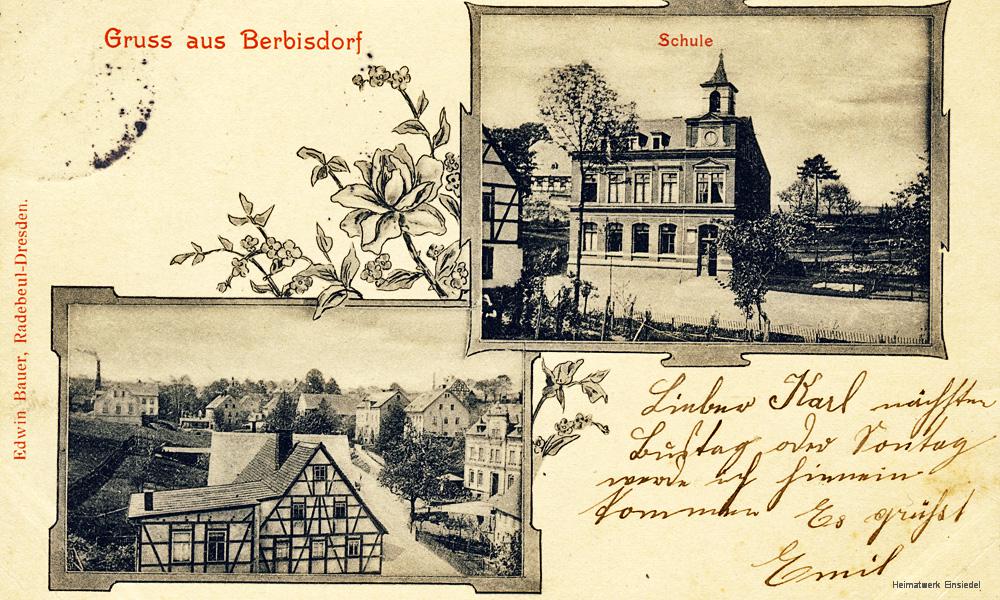 Gruss aus Berbisdorf
Schule
Edwin Bauer, Radebeul-Dresden.
Lieber Karl nächsten
Bußtag oder Sontag
werde ich hinnein
kommen Es grüßt
Emil
Heimatwerk Einsiedel